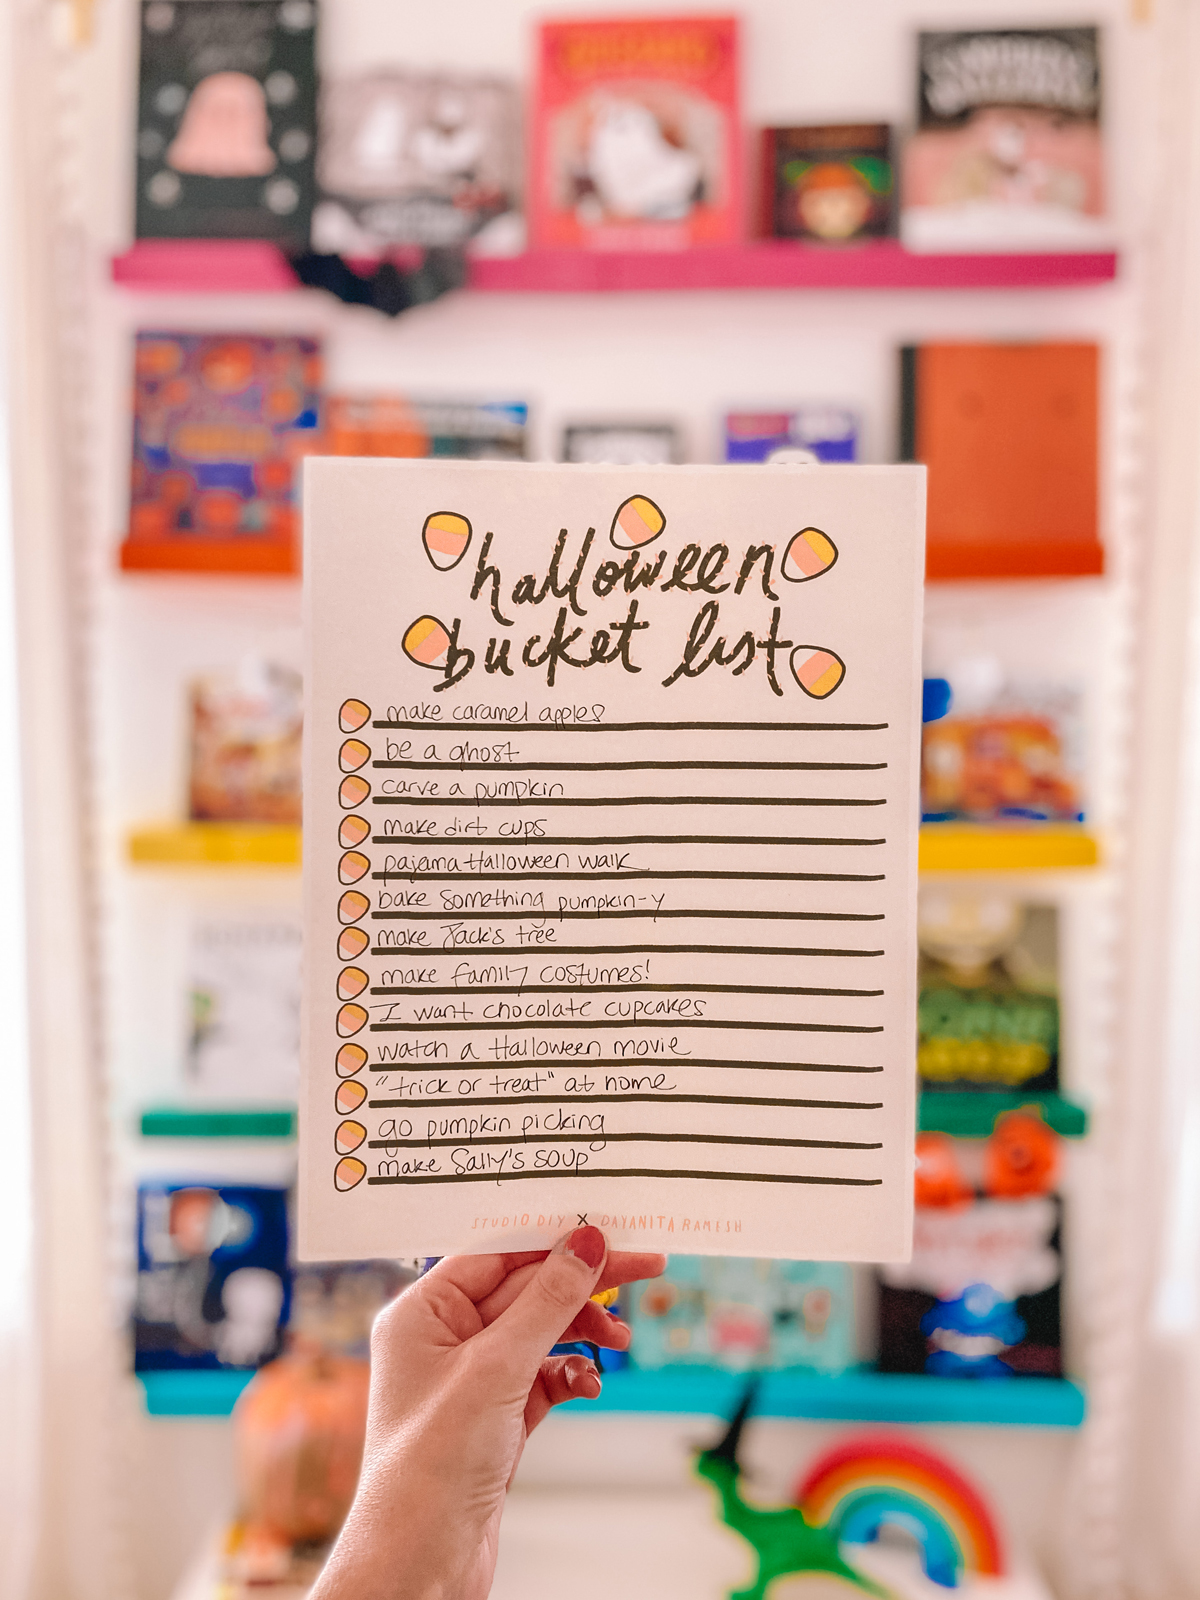 halloween
bucket list
make caramel apples
be a ghost
carve a pumpkin
make dirt cups
pajama Halloween walk
bake something pumpkin-y
make Jack's tree
make family costumes!
I want chocolate cupcakes
watch a Halloween movie
"trick or treat" at home
go pumpkin picking
make Sally's soup
STUDIO DIY X DAYANITA RAMESH